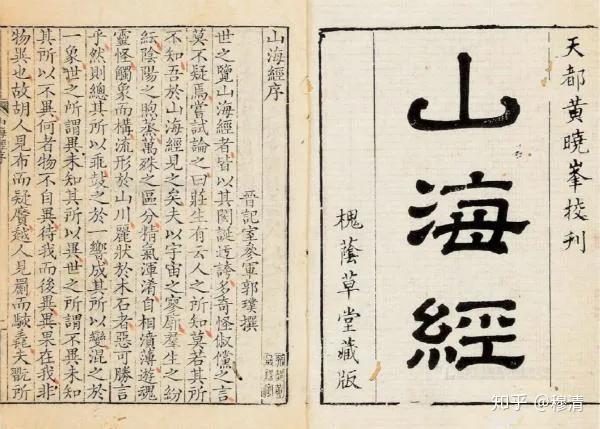 天都黄曉峯挍刊
山海經
槐蔭草堂藏版
山海經序
晉記室參軍郭璞撰
世之覽山海經者皆以其閎誕迂誇多奇怪俶儻之言
莫不疑焉嘗試論之曰莊生有云人之所知莫若其所
不知吾於山海經見之矣夫以宇宙之寥廓羣生之紛
紜陰陽之煦蒸萬殊之區分精氣渾淆自相濆薄遊魂
靈怪觸象而構流形於山川麗狀於木石者惡可勝言
乎然則總其所以乖鼓之於一響成其所以變混之於
一象世之所謂異未知其所以異世之所謂不異未知
其所以不異何者物不自異待我而後異異果在我非
物異也故胡人見布而疑黂越人見罽而駭毳夫翫所
知乎 @穆清